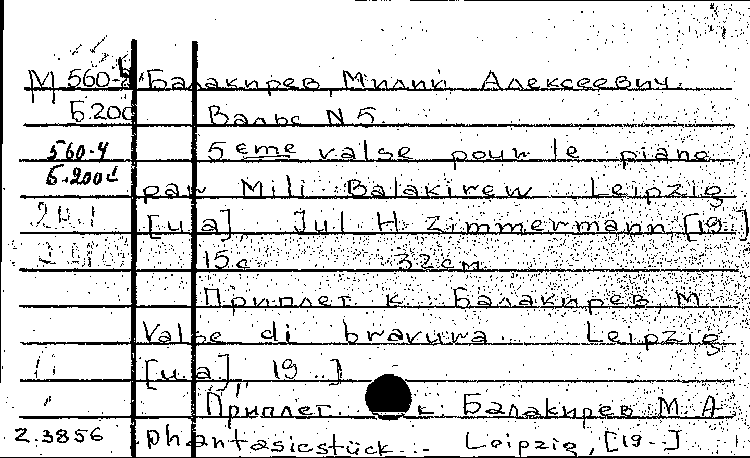 М 560-4 Балакирев, Милий Алексеевич.
Б.200 Вальс N 5.
560-4 5 eme valse pour le piano
Б.200 par Mili Balakirew. Leipzig
[u.a], Jul. H. Zimmermann, [19..]
15 с. 32 см.
Приплет к: Балакирев, М.
Valse di bravura. Leipzig
[u.a], 19..]
Приплет. к: Балакирев М. А.
2.3856 Phantasiestück... Leipzig, [19..]